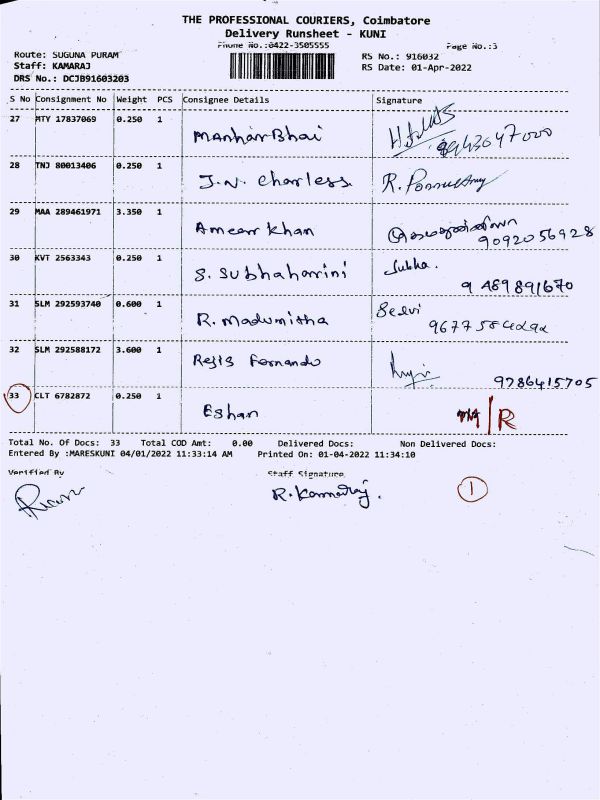 THE PROFESSIONAL COURIERS, Coimbatore
Delivery Runsheet - KUNI
Phone No.:0422-3505555 Page No.:3
Route: SUGUNA PURAM RS No.: 916032
Staff: KAMARAJ RS Date: 01-Apr-2022
DRS No.: DCJB91603203
S No Consignment No Weight PCS Consignee Details Signature
27 MTY 17837069 0.250 1 Manhar Bhai
28 TNJ 80013406 0.250 1 J.N. Charless
29 MAA 289461971 3.350 1 Ameer Khan 9092056928
30 KVT 2563343 0.250 1 S. Subhaharini Subha.
9489891670
31 SLM 292593740 0.600 1 R. Madumitha Selvi
32 SLM 292588172 3.600 1 Regis Fernando
9786415705
33 CLT 6782872 0.250 1 Eshan R
Total No. Of Docs: 33 Total COD Amt: 0.00 Delivered Docs: Non Delivered Docs:
Entered By :MARESKUNI 04/01/2022 11:33:14 AM Printed On: 01-04-2022 11:34:10
Verified By Staff Signature
R. Kamaraj. 1